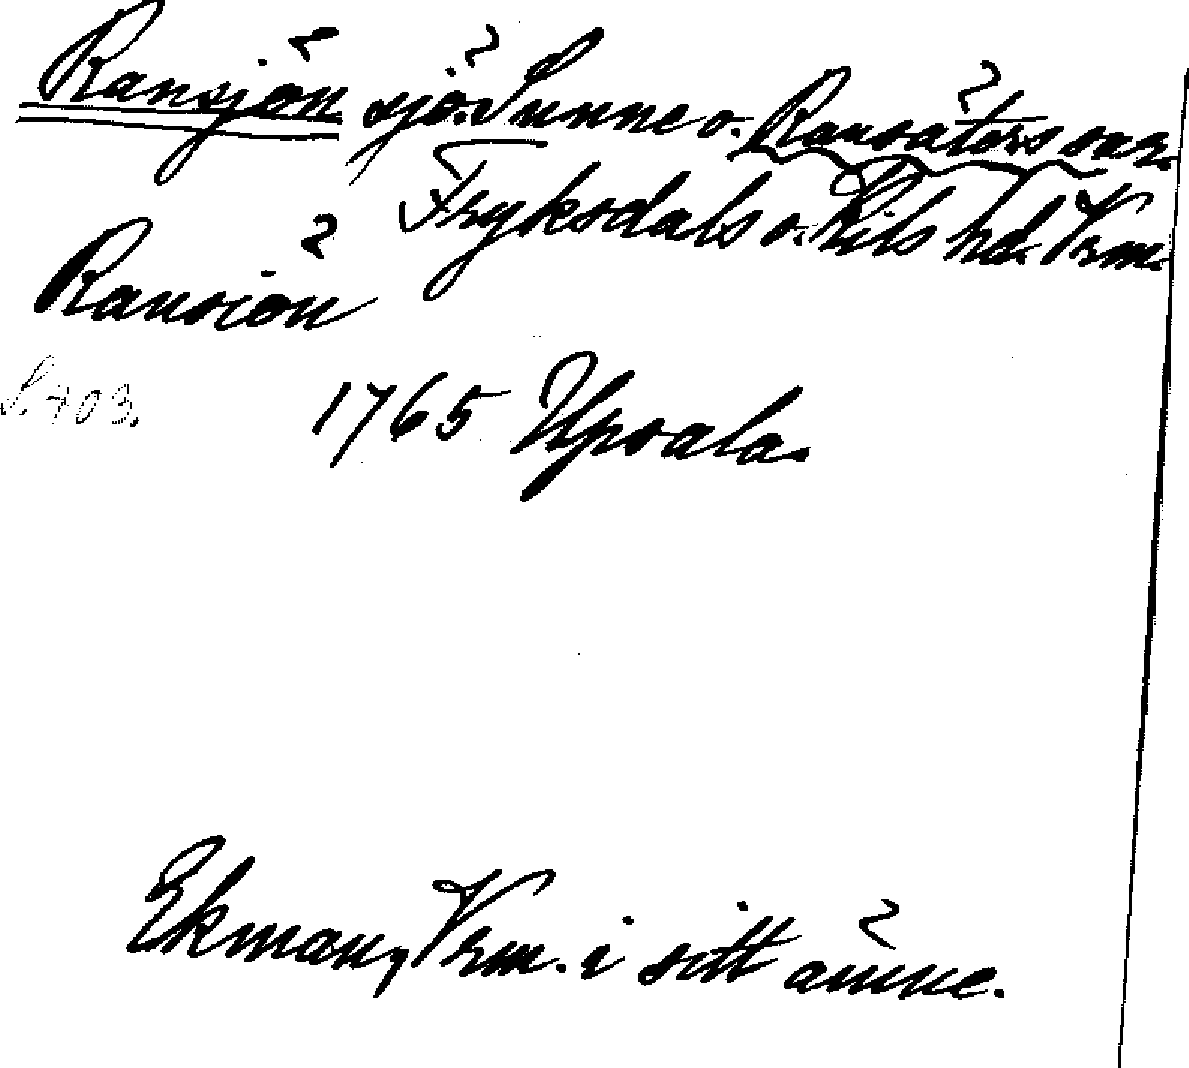 Ransjön sjö. Sunne o. Ransäters snr.
Fryksdals o. Kils hd. Vrm.
Ransiön
S. 703. 1765 Upsala.
Ekman, Vrm. i sitt ämne.